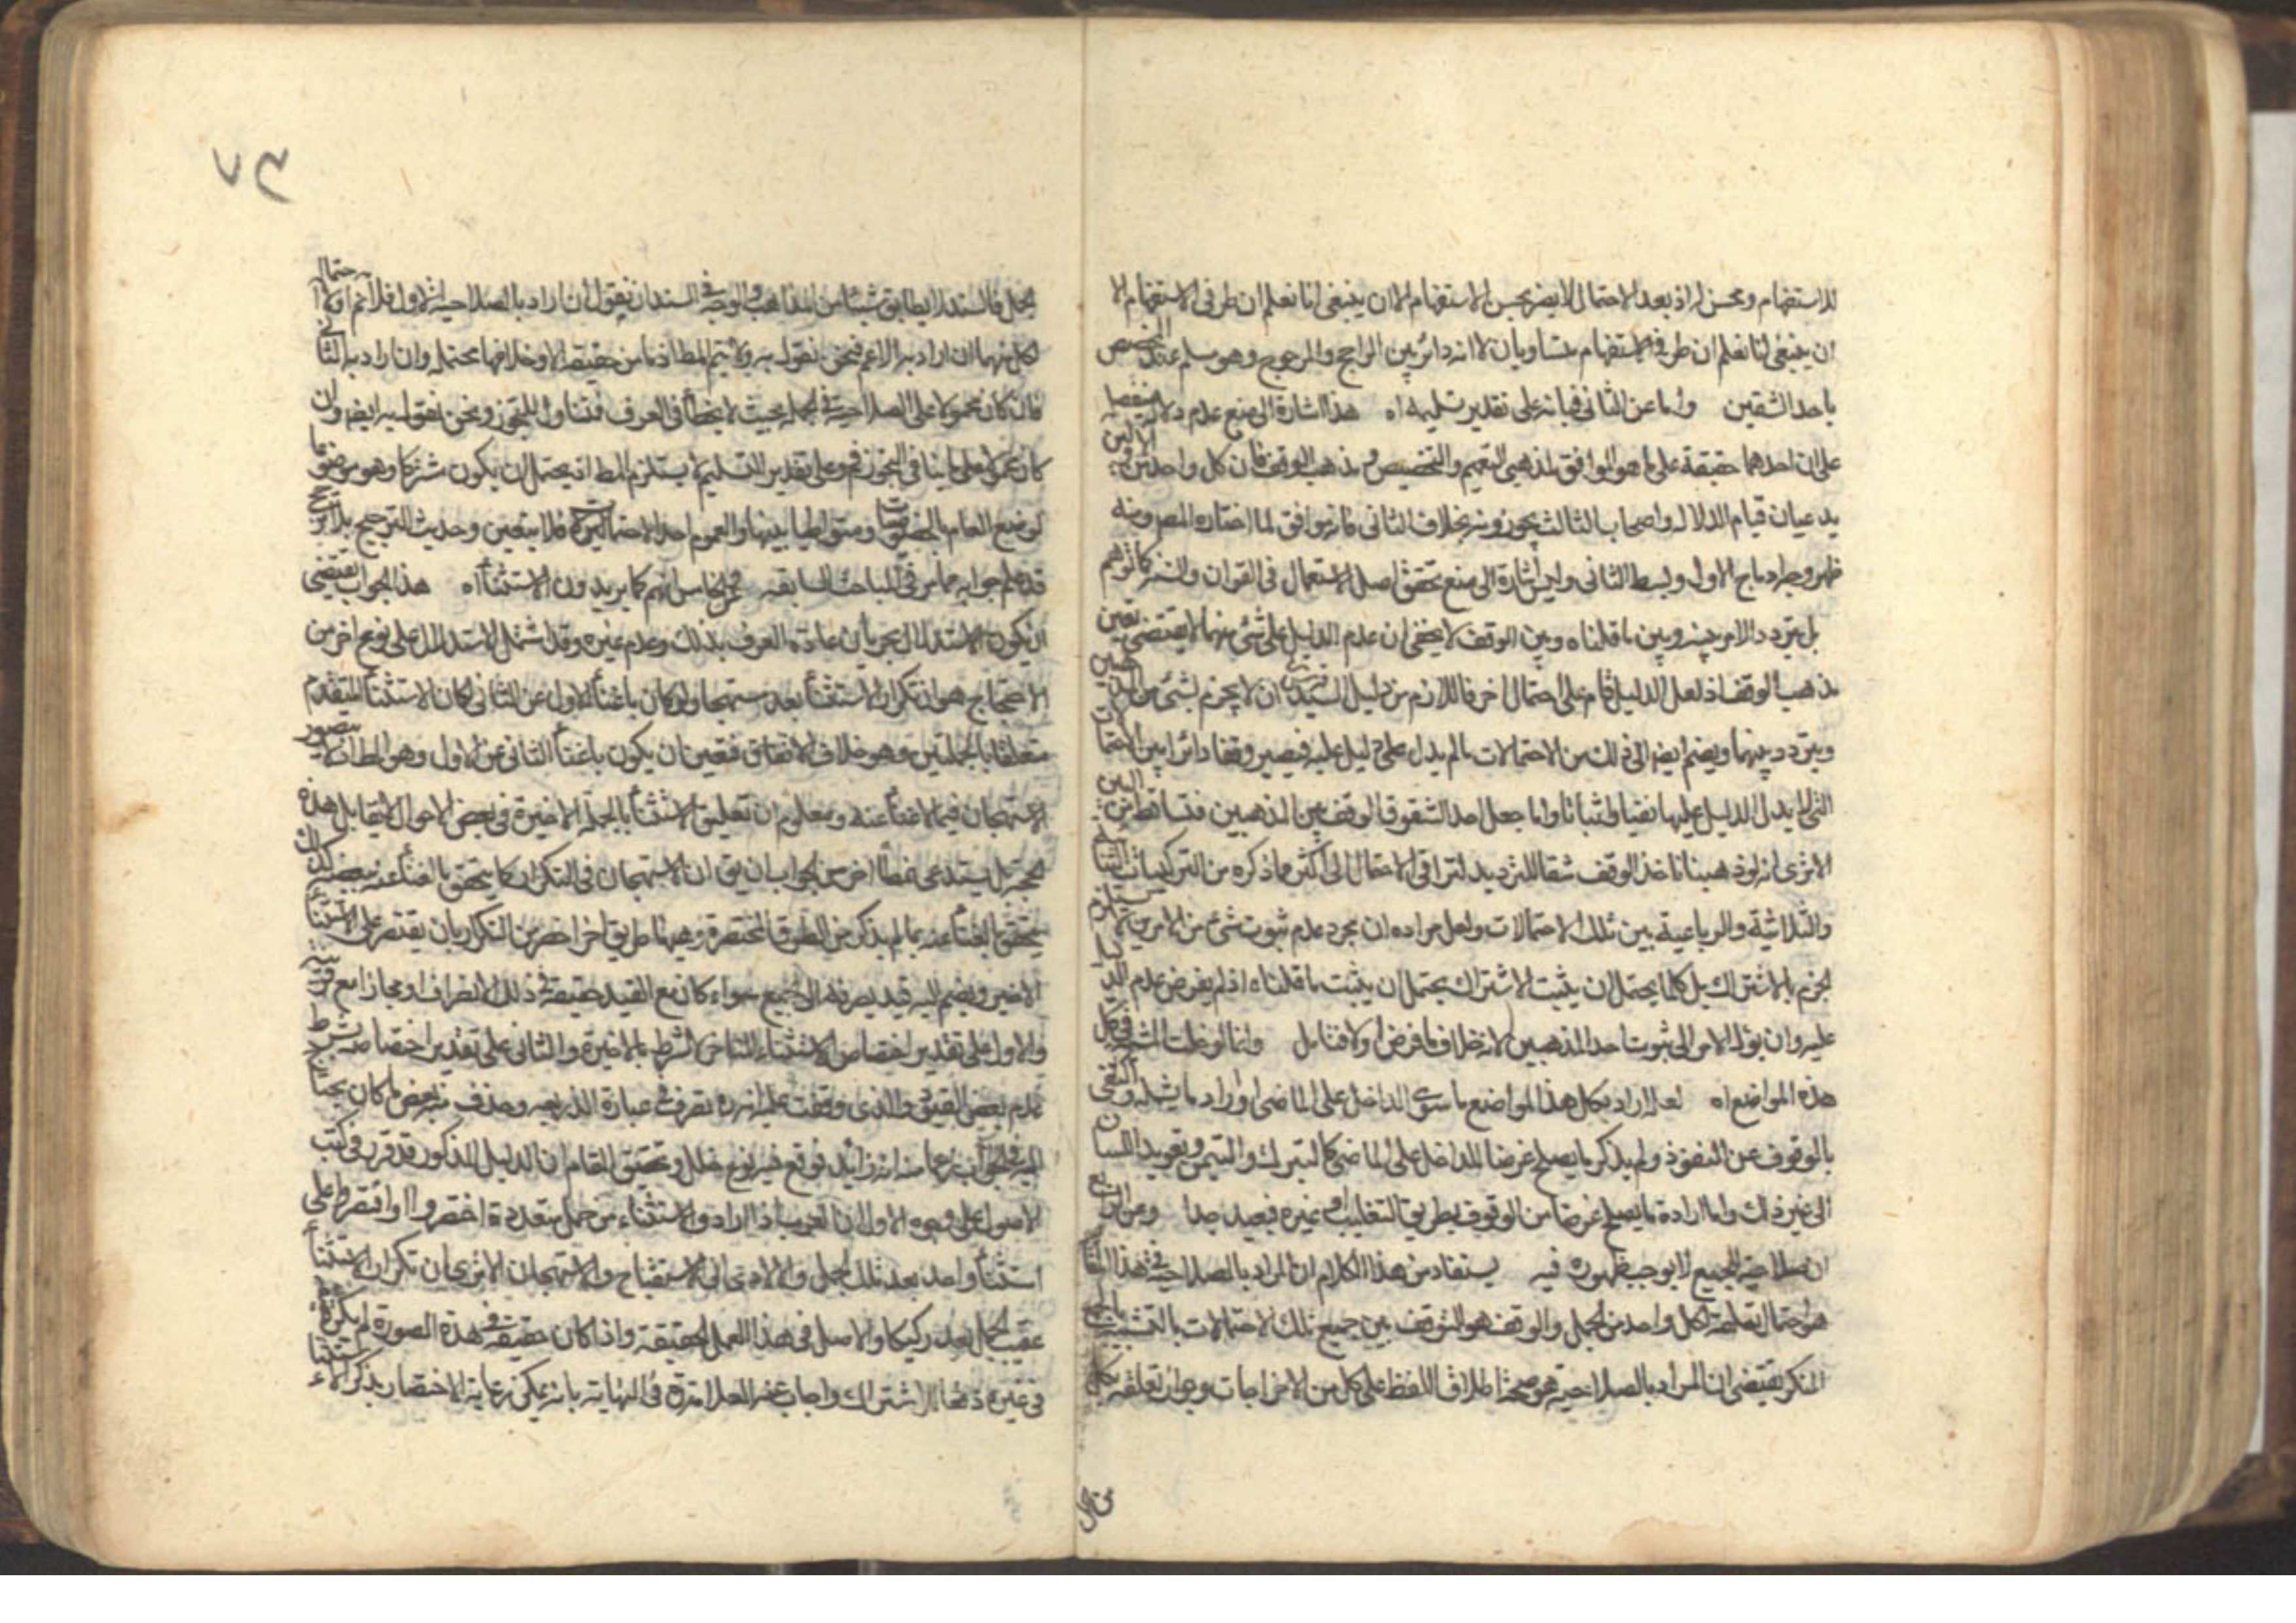 للاستفهام ومحسن له اذ بعد الاحتمال لا يضر بحسن الاستفهام الا ان ينبغي انا نعلم ان طرفي الاستفهام الا
ان ينبغي انا نعلم ان طرفي الاستفهام متساويان لا انه دائر بين الراجح والمرجوح وهو مسلم عند المخصص
باحد الشقين واما عن الثاني فبانه على تقدير تسليمه اه هذا اشارة الى منع عدم دلالة
على ان احدهما حقيقة على ما هو الموافق لمذهبي التعميم والتخصيص ومذهب الوقف فان كل واحد من
يدعيان قيام الدلالة واصحاب الثالث يجوزونه بخلاف الثاني فانه يوافق لما اختاره المص ومنه
ظهر وجه ادماج الاول وبسط الثاني وليس اشارة الى منع تحقق اصل الاستعمال في القران والسنة كما توهم
بل يتردد الامر بينه وبين ما قلناه وبين الوقف لا يخفى ان عدم الدليل على شئ منهما لا يقتضي تعين
مذهب الوقف اذ لعل الدليل قام على احتمال اخر فاللازم من دليل السيد ان لا يجزم بشئ من
ويتردد بينهما ويضم ايضا الى ذلك من الاحتمالات ما لم يدل على دليل عليه فيصير وقفا دائرا بين
التي لا يدل الدليل عليها نفيا واثباتا واما جعل احد الشقوق الوقف بين المذهبين فتساقط من
الا ترى انه لو ذهبنا ناخذ الوقف شقا للترديد لتراقى الاحتمال الى اكثر مما ذكره من التركيبات
والثلاثية والرباعية بين تلك الاحتمالات ولعل مراده ان مجرد عدم ثبوت شئ من الامرين لا
الجزم بالاشتراك بل كما يحتمل ان يثبت الاشتراك يحتمل ان يثبت ما قلناه اذ لم يفرض عدم
عليه وان يؤل الامر الى ثبوت احد المذهبين لانه خلاف ما فرض اولا فتامل وانما لو دخلت
هذه المواضع اه لعله اراد بكل هذا المواضع ما سوى الداخل على الماضي او اراد ما يشمله
بالوقوف عن النفوذ ولم يذكر ما يصلح غرضا للداخل على الماضي كالتبرك والتيمن وتعويد اللسان
الى غير ذلك واما ارادة ما يصلح غرضا من الوقوف بطريق التغليب وغيره فبعيد جدا وعن
ان صلاحية الجميع لا يوجب ظهوره فيه يستفاد من هذا الكلام ان المراد بالصلاحية في هذا
هو احتمال تعلقه لكل واحد من الجمل والوقف هو التوقف بين جميع تلك الاحتمالات
المنكر يقتضي ان المراد بالصلاحية هو صحة اطلاق اللفظ على كل من الاخراجات وجواز تعلقه بكل
من الجمل
٧٣
الجمل فالسند لا يطابق شيئا من المذاهب والوجه في السند ان يقول ان اراد بالصلاحية الاول فلا نم
لكل منهما ان اراد به الاعم فنحن نقول به ولا يتم المط اذ ما من حقيقة الا وخلافها محتمله وان اراد به الثاني
فان كان محمولا على الصلاحية في الجملة بحيث لا يخطأ في العرف فتناول للتجوز ونحن نقول به ايضا وان
كان محمولا على ما ينافي التجوز فم وعلى تقدير التسليم لا يستلزم المط اذ يحتمل ان يكون مشتركا وهو موضوعا
لوضع العام بالخصوصيات ومتواطيا بينها والعموم احد الاحتمالين فلا يتعين وحديث الترجيح بلا مرجح
قد علم جوابه مما مر في المباحث السابقة الخامس انهم كما يريدون الاستثناء اه هذا الجواب يقتضي
ان يكون الاستدلال بجريان عادة العرف بذلك وعدم غيره وقد اشتمل الاستدلال على نوع اخر من
الاحتجاج هو ان تكرار الاستثناء بعد مستهجا ولو كان باغناء الاول عن الثاني لكان الاستثناء المتقدم
متعلقا بالجملتين وهو خلاف الاتفاق فتعين ان يكون باغناء الثاني عن الاول وهو المط اذ لا يتصور
الاستهجان فيما لا غناء عنه ومعلوم ان تعليق الاستثناء بالجملة الاخيرة في بعض الاحوال لا يقابل هذه
الحجة بل يستدعي نمطا اخر من الجواب بان يق ان الاستهجان في التكرار كما يتحقق بالغناء عنه
يتحقق بالغناء عنه بما لم يذكر من الطرق المختصرة وههنا طريق اخر اخصر من التكرار بان يقتصر على الاستثناء
الاخير ويضم اليه قيد يصرفه الى الجميع سواء كان مع القيد حقيقة في ذلك الانصراف او مجازا مع قرينة
والاول على تقدير اختصاص الاستثناء المتاخر بالاخيرة والثاني على تقدير اختصاصه
عدم بعض القيود والذي وقفت عليه انه ره تصرف في عبارة الذريعة وحذف منه بعض ما كان
اليه في الجواب زعما منه انه زائد فوقع فيه نوع خلل وتحقيق المقام ان الدليل المذكور قد قرر في كتب
الاصول على وجوه الاول ان العرب اذا ارادوا الاستثناء من جمل متعددة اختصروا او اقتصروا على
استثناء واحد بعد تلك الجمل والا لادى الى الاستقباح والاستهجان الا ترى ان تكرار الاستثناء
عقيب الجمل يعد ركيكا والاصل في هذا العمل الحقيقة واذا كان حقيقة في هذه الصورة لم يكن
في غيره دفعا للاشتراك واجاب عنه العلامة ره في النهاية بانه يمكن رعاية الاختصار بذكر الاستثناء